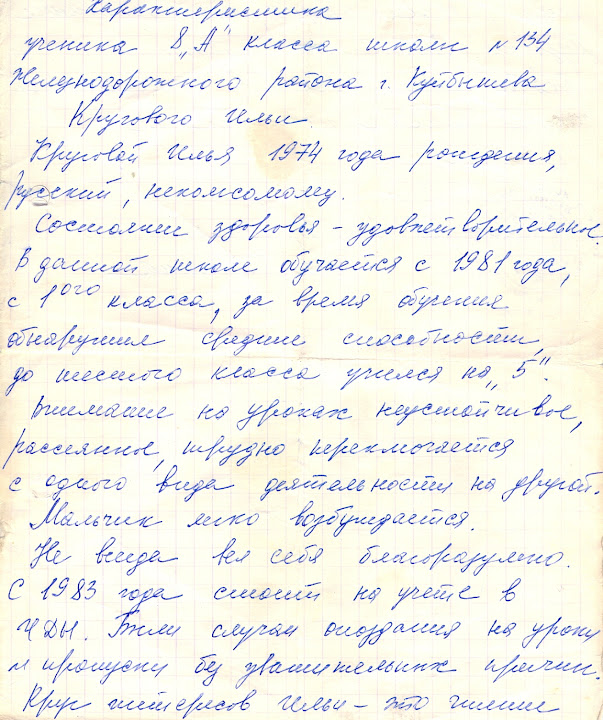 Характеристика
ученика 8 „А" класса школы № 134
Железнодорожного района г. Куйбышева
Кругового Ильи.
Круговой Илья 1974 года рождения,
русский, некомсомолец.
Состояние здоровья - удовлетворительное.
В данной школе обучается с 1981 года,
с 1ого класса, за время обучения
обнаружил средние способности,
до шестого класса учился на „5".
Внимание на уроках неустойчивое,
рассеянное, трудно переключается
с одного вида деятельности на другой.
Мальчик легко возбуждается.
Не всегда вел себя благоразумно.
С 1983 года стоит на учете в
Были случаи опоздания на уроки
и пропуски без уважительных причин.
Круг интересов Ильи - это чтение